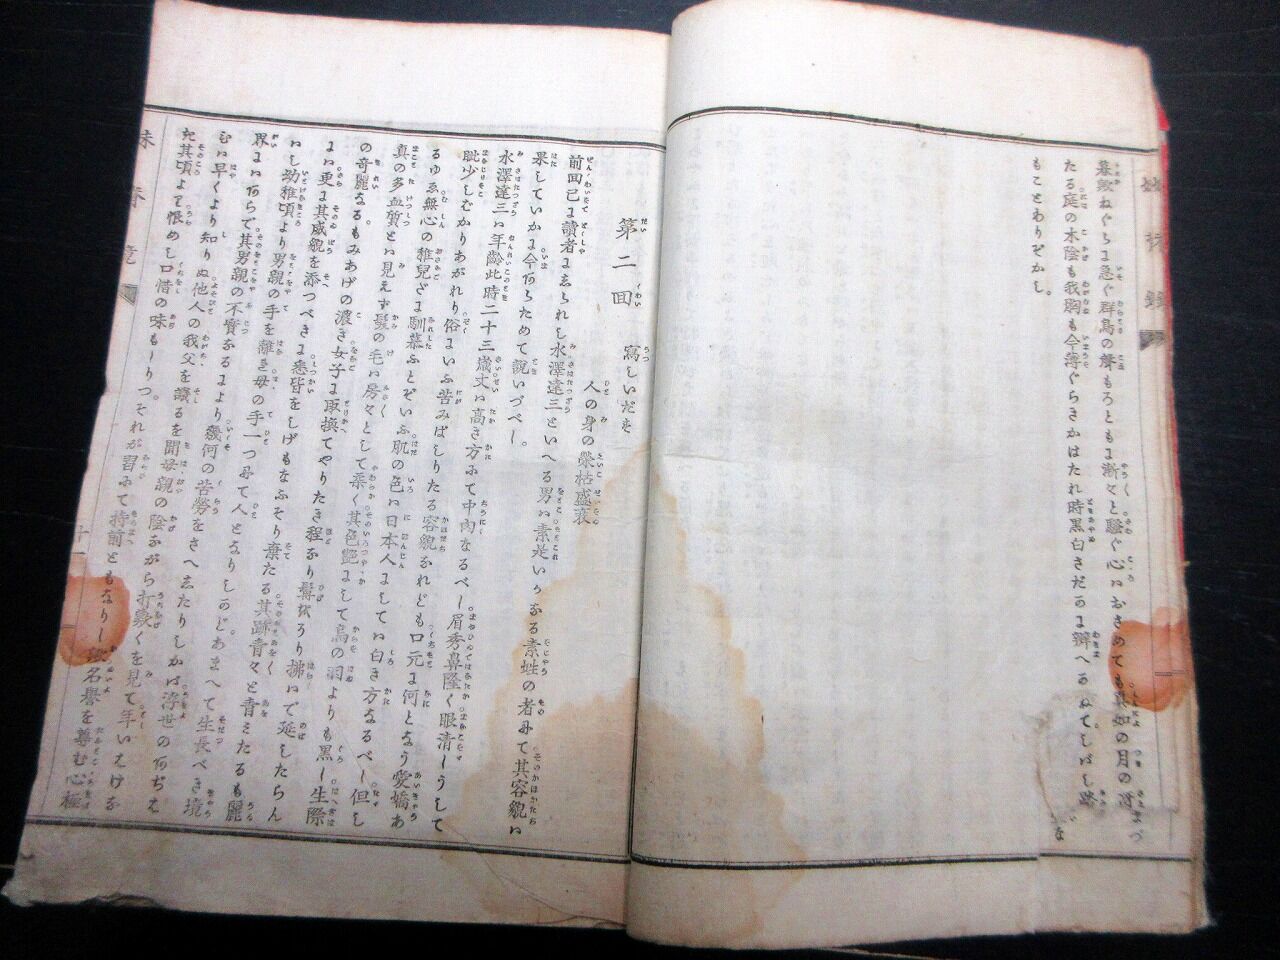 暮鴉ねぐらに急ぐ群鳥の聲もろともに漸々と騒ぐ心はおさめても真如の月の
たる庭の木陰も我胸も今薄ぐらきかはたれ時黒白さだかに辯へかねてしばし
もことわりぞかし。
第二回
寫しいだす
人の身の榮枯盛衰
前回已に讀者にしられし水澤達三といへる男は素是いかなる素姓の者にて其容貌は
果していかに今あらためて説いづべし。
水澤達三は年齢此時二十三歳丈は高き方にて中肉なるべし眉秀鼻隆く眼清しうして
眦少しむかりあがれり俗にいふ苦みばしりたる容貌なれども口元に何となう愛嬌あ
るゆゑ無心の稚兒さま馴慕ふとぞいふ肌の色は日本人にしては白き方なるべし但し
真の多血質とは見えず髪の毛は房々として柔く其色艶にして烏の羽よりも黒し生際
の奇麗なるもみあげの濃き女子に取換てやりたき程なり髯はうり拂はで延したらん
には更に其威貌を添つべきに悉皆をしげもなふそり棄たる其跡青々と青みたるも麗
はし幼稚頃より男親の手を離れ母の手一つにて人となりしのどあまへて生長べき境
界にはあらで其男親の不實なるより幾何の苦勞をさへしたりしかば浮世のあぢき
むは早くより知りぬ他人の我父を譏るを聞母親の陰ながら打歎くを見て年いはけな
た其頃よて恨めし口惜の味もしりつそれが習ふて持前ともなりし名譽を尊む心極